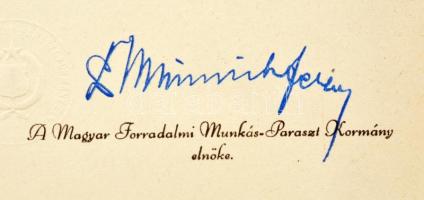 Dr Münnich Ferenc
A Magyar Forradalmi Munkás-Paraszt Kormány
elnöke.